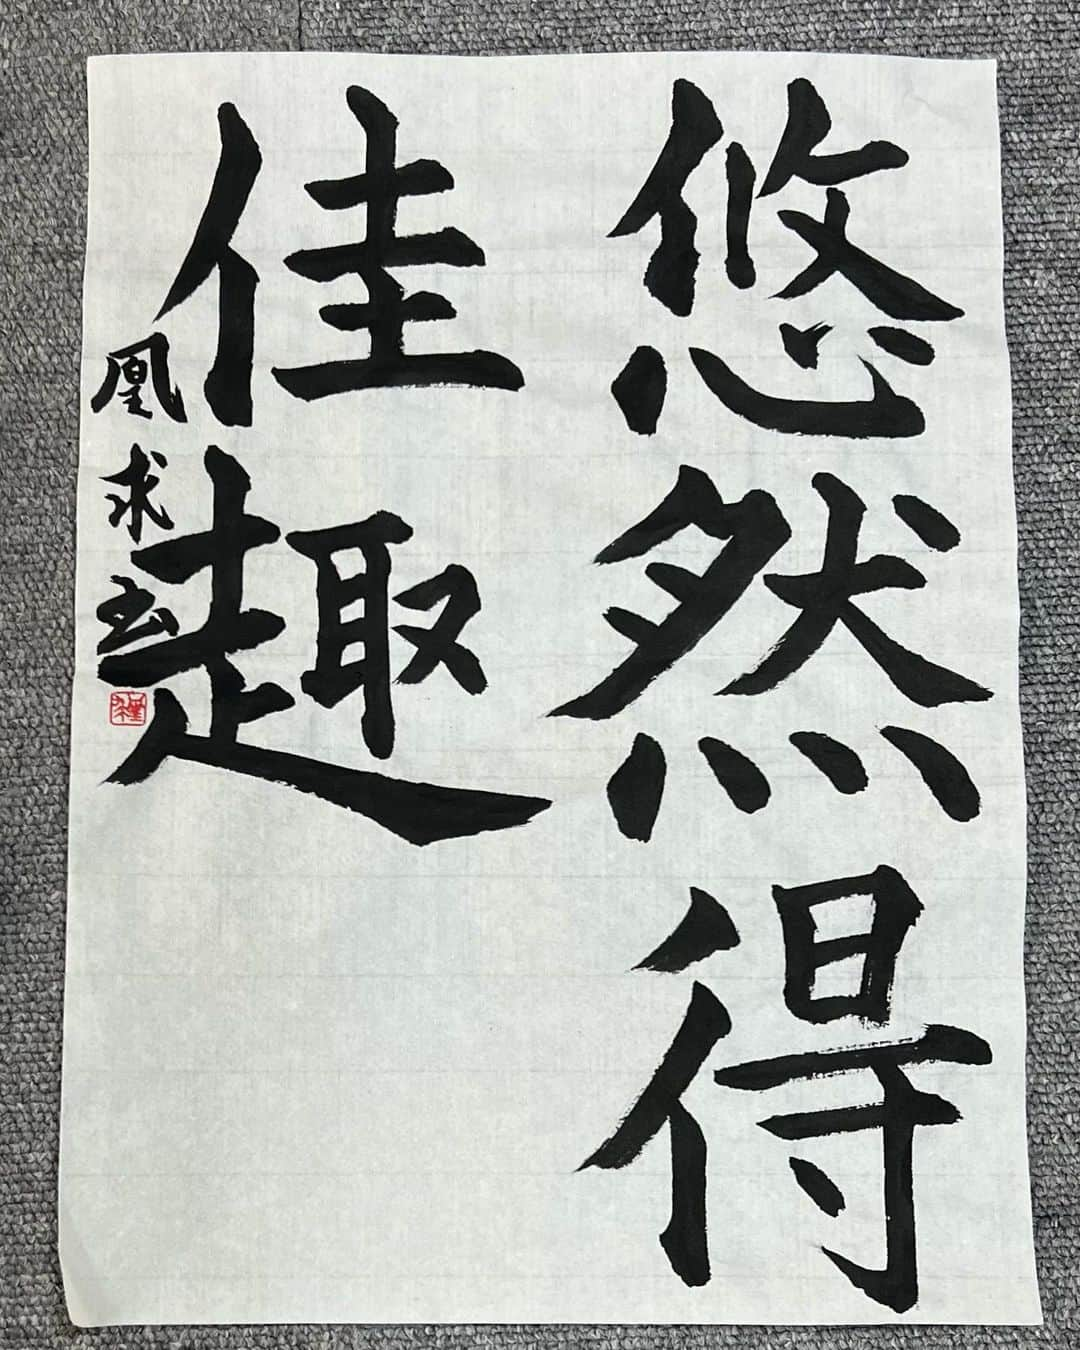 悠然得
佳趣
凰求書